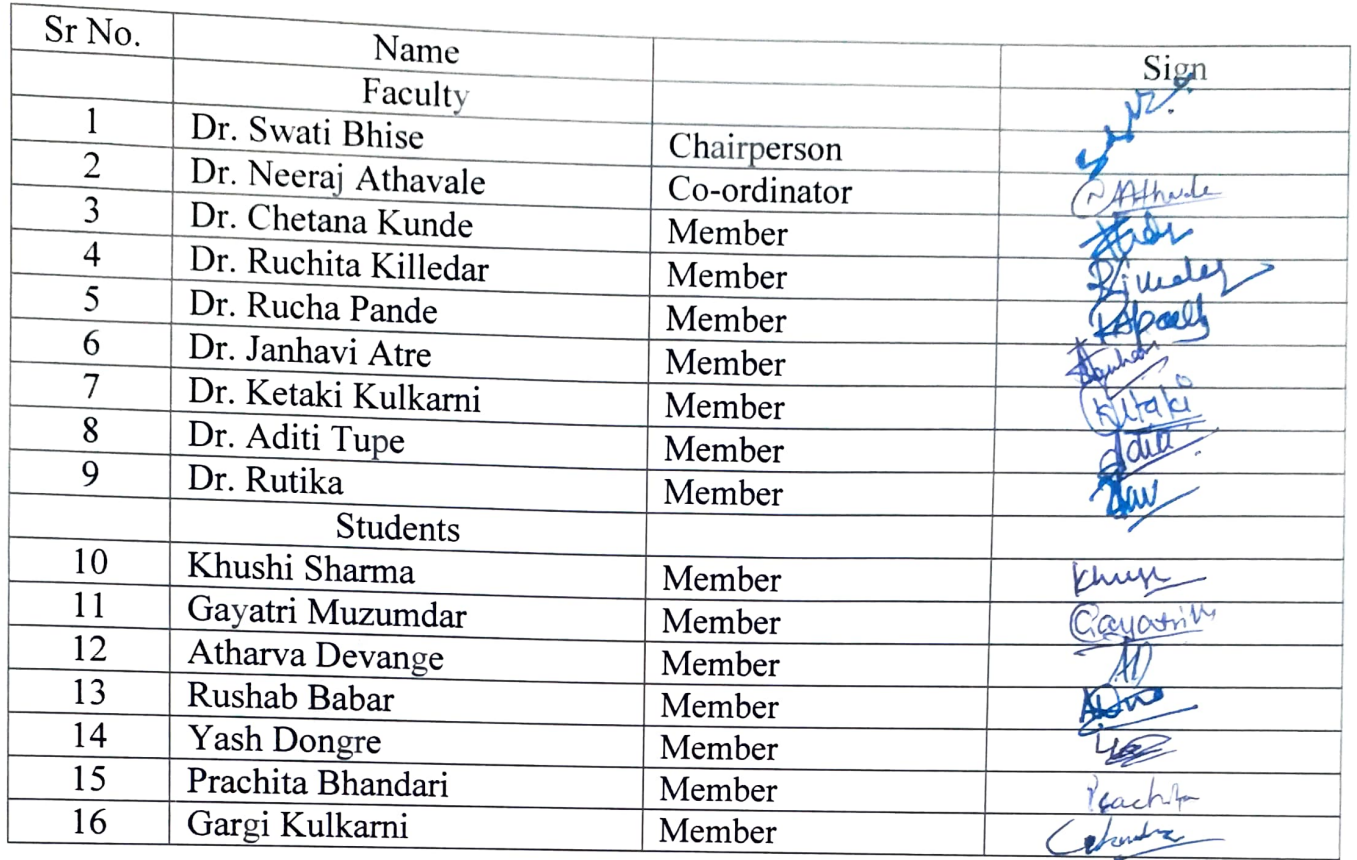 Sr No. Name Sign
Faculty
1 Dr. Swati Bhise Chairperson
2 Dr. Neeraj Athavale Co-ordinator NAthavale
3 Dr. Chetana Kunde Member
4 Dr. Ruchita Killedar Member
5 Dr. Rucha Pande Member
6 Dr. Janhavi Atre Member
7 Dr. Ketaki Kulkarni Member Ketaki
8 Dr. Aditi Tupe Member Aditi
9 Dr. Rutika Member
Students
10 Khushi Sharma Member
11 Gayatri Muzumdar Member GayatriM
12 Atharva Devange Member AD
13 Rushab Babar Member
14 Yash Dongre Member
15 Prachita Bhandari Member Prachita
16 Gargi Kulkarni Member